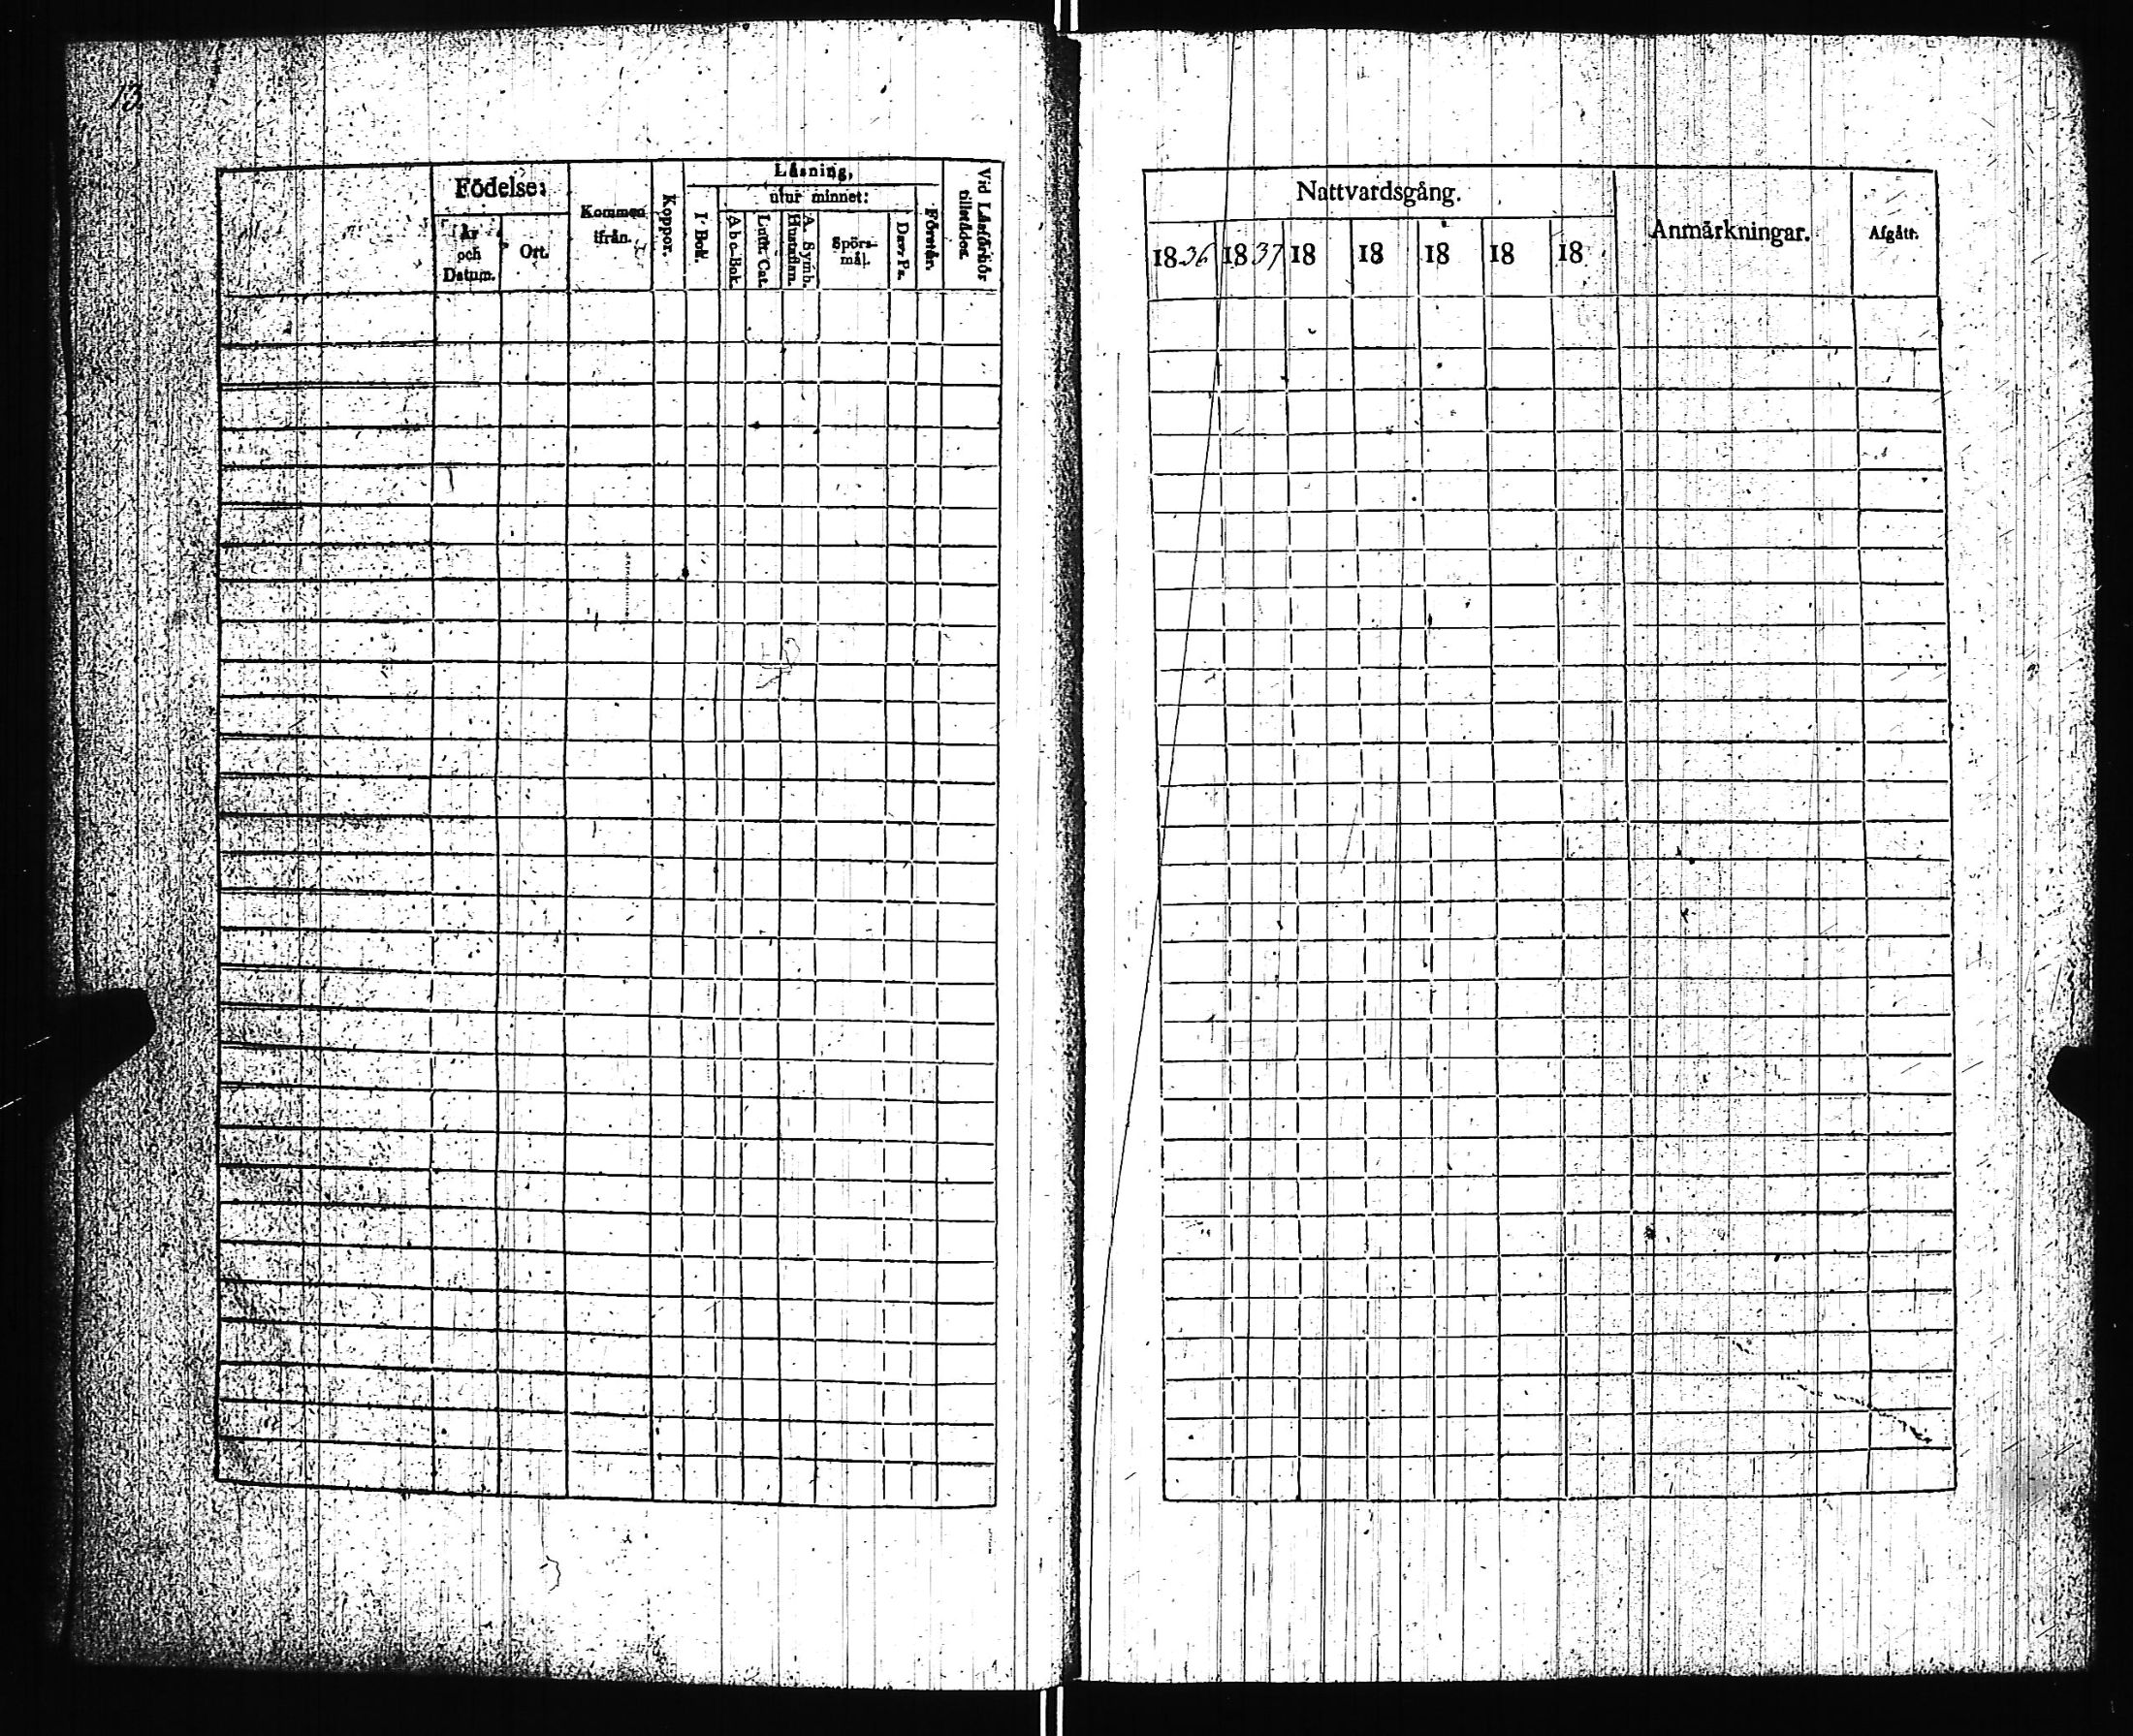 13.
Födelse:
År och Datum.
Ort.
Kommen ifrån.
Koppor.
Läsning,
I Bok.
utur minnet:
A b c-Bok.
Luth. Cat.
A. Symb. Hustaflan.
Spörsmål.
Dav. Ps.
Förstår.
Vid Läsförhör tillstädes.
Nattvardsgång.
1836 1837 18 18 18 18 18
Anmärkningar.
Afgått.